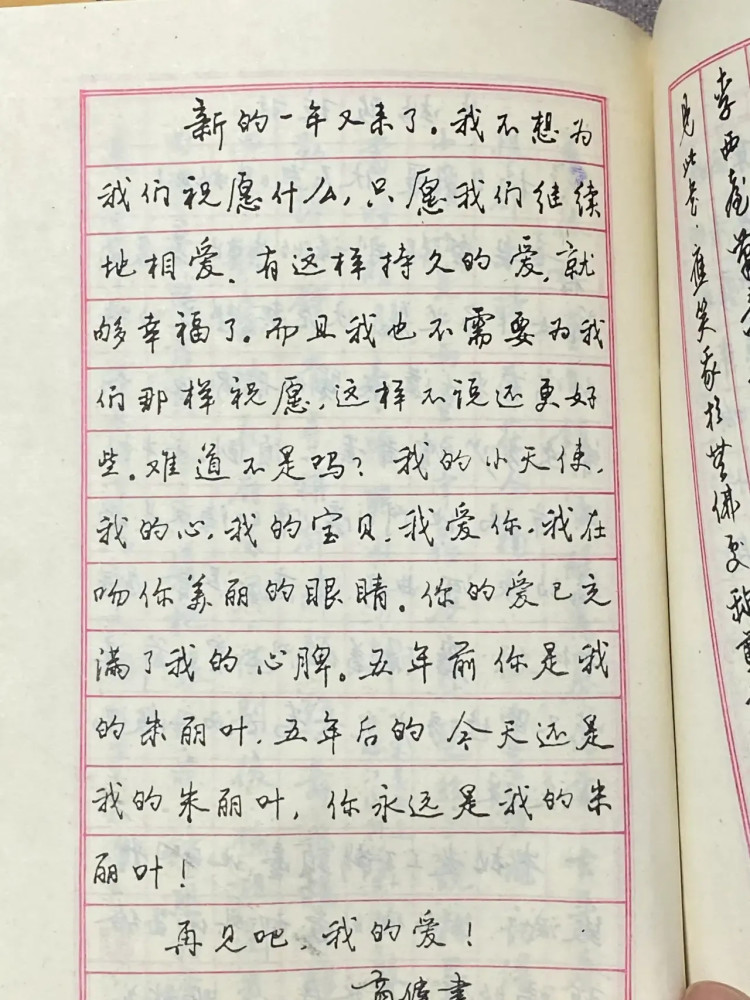 新的一年又来了。我不想为
我们祝愿什么,只愿我们继续
地相爱.有这样持久的爱,就
够幸福了。而且我也不需要为我
们那样祝愿,这样不说还更好
些。难道不是吗?我的小天使,
我的心,我的宝贝,我爱你.我在
吻你美丽的眼睛。你的爱已充
满了我的心脾。五年前你是我
的朱丽叶,五年后的今天还是
我的朱丽叶,你永远是我的朱
丽叶!
再见吧,我的爱!